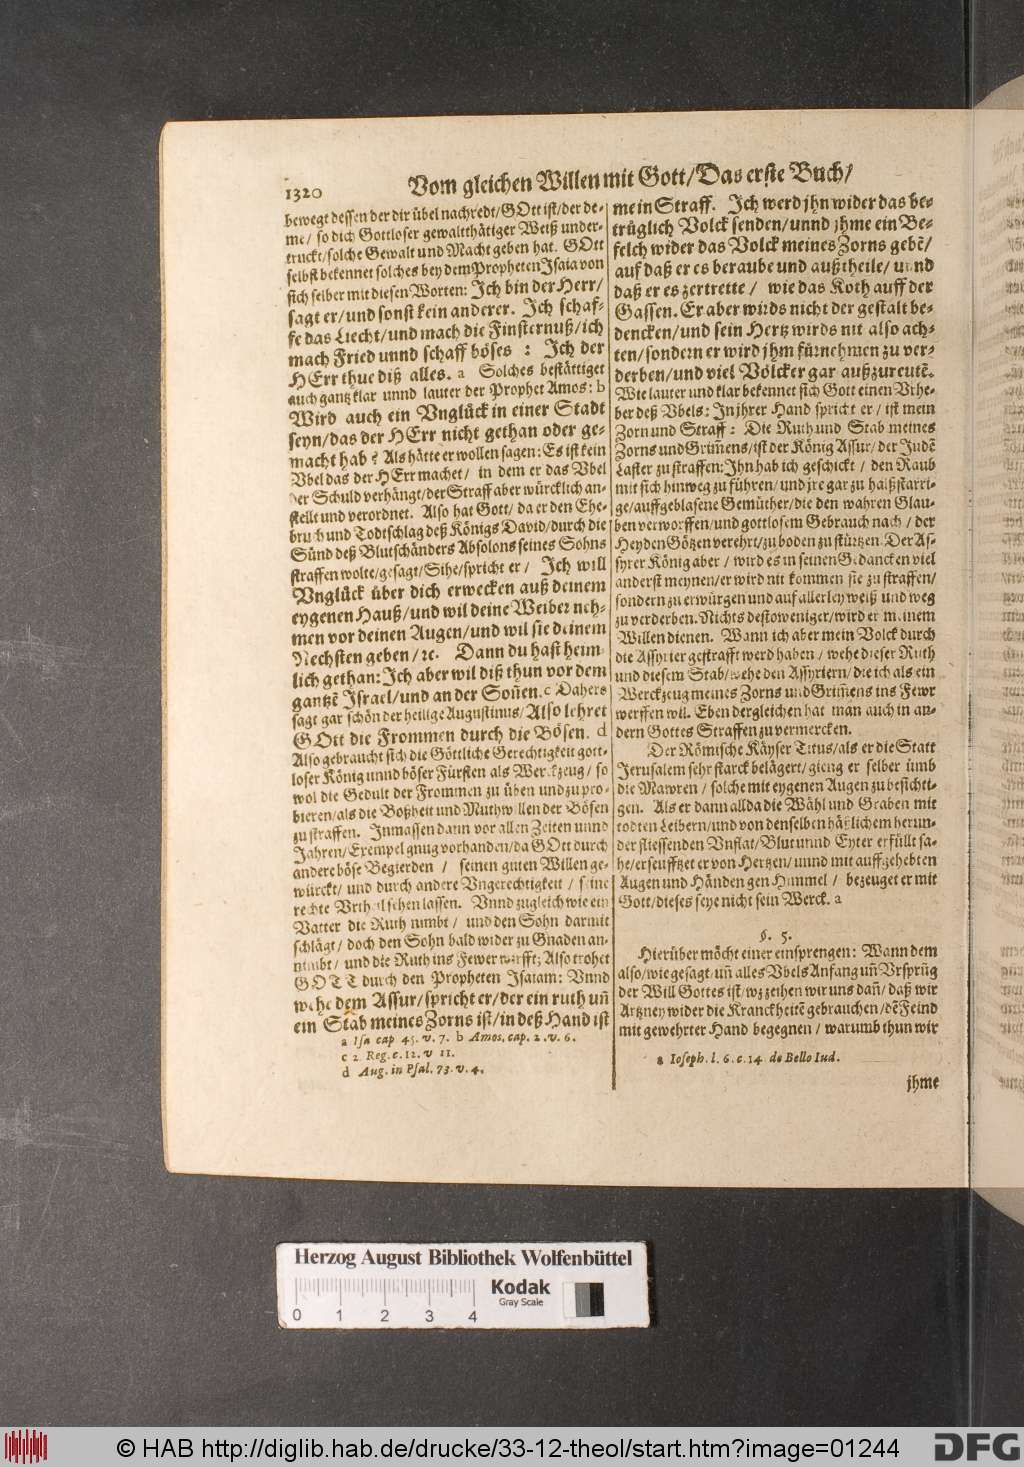 1320
Vom gleichen Willen mit Gott/Das erste Buch/
bewegt dessen der dir übel nachredt/GOtt ist/der de-
me/ so dich Gottloser gewaltthätiger Weiß under-
truckt/solche Gewalt und Macht geben hat. GOtt
selbst bekennet solches bey dem Propheten Isaia von
sich selber mit diesen Worten: Ich bin der Herr/
sagt er/und sonst kein anderer. Ich schaf-
fe das Liecht/und mach die Finsternuß/ich
mach Fried unnd schaff böses : Ich der
HErr thue diß alles. a Solches bestättiget
auch gantz klar unnd lauter der Prophet Amos: b
Wird auch ein Vnglück in einer Stadt
seyn/das der HErr nicht gethan oder ge-
macht hab? Als hätte er wollen sagen: Es ist kein
Vbel das der HErr machet/ in dem er das Vbel
der Schuld verhängt/der Straff aber würcklich an-
stellt und verordnet. Also hat Gott/ da er den Ehe-
bruch und Todtschlag deß Königs David/durch die
Sünd deß Blutschänders Absolons seines Sohns
straffen wolte/gesagt/Sihe/spricht er/ Ich will
Vnglück über dich erwecken auß deinem
eygenen Hauß/und wil deine Weiber neh-
men vor deinen Augen/und wil sie deinem
Nechsten geben/ꝛc. Dann du hast heim-
lich gethan: Ich aber wil diß thun vor dem
gantzē Israel/und an der Soñen. c Dahers
sagt gar schön der heilige Augustinus/Also lehret
GOtt die Frommen durch die Bösen. d
Also gebraucht sich die Göttliche Gerechtigkeit gott-
loser König unnd böser Fürsten als Werckzeug/ so
wol die Gedult der Frommen zu üben und zu pro-
bieren/als die Boßheit und Muthwillen der Bösen
zu straffen. Inmassen dann vor allen Zeiten unnd
Jahren/Exempel gnug vorhanden/da GOtt durch
andere böse Begierden / seinen guten Willen ge-
würckt/ und durch andere Vngerechtigkeit / seine
rechte Vrtheil sehen lassen. Vnnd zugleich wie ein
Vatter die Ruth nimbt/ und den Sohn darmit
schlägt/ doch den Sohn bald wider zu Gnaden an-
nimbt/ und die Ruth ins Fewer wirfft; Also trohet
GOTT durch den Propheten Isaiam: Vnnd
wehe dem Assur/spricht er/der ein ruth uñ
ein Stab meines Zorns ist/in deß Hand ist
a Isa cap 45. v. 7. b Amos. cap. 2. v. 6.
c 2. Reg. c. 12. v 11.
d Aug. in Psal. 73. v. 4.
mein Straff. Ich werd jhn wider das be-
trüglich Volck senden/unnd jhme ein Be-
felch wider das Volck meines Zorns gebē/
auf daß er es beraube und außtheile/ unnd
daß er es zertrette/ wie das Koth auff der
Gassen. Er aber wirds nicht der gestalt be-
dencken/und sein Hertz wirds nit also ach-
ten/sondern er wird jhm fürnehmen zu ver-
derben/und viel Völcker gar außzureutē.
Wie lauter und klar bekennet sich Gott einen Vrhe-
ber deß Vbels: In jhrer Hand spricht er/ ist mein
Zorn und Straff : Die Ruth und Stab meines
Zorns und Grim̄ens/ist der König Assur/ der Judē
Laster zu straffen: Ihn hab ich geschickt/ den Raub
mit sich hinweg zu führen/und jre gar zu halßstarri-
ge/auffgeblasene Gemüther/die den wahren Glau-
ben verworffen/und gottlosem Gebrauch nach / der
Heyden Götzen verehrt/zu boden zu stürtzen. Der As-
syrer König aber / wird es in seinen Gedancken viel
anderst meynen/er wird nit kommen sie zu straffen/
sondern zu erwürgen und auf allerley weiß und weg
zu verderben. Nichts destoweniger/wird er meinem
Willen dienen. Wann ich aber mein Volck durch
die Assyrier gestrafft werd haben / wehe dieser Ruth
und diesem Stab/wehe den Assyriern/die ich als ein
Werckzeug meines Zorns und Grim̄ens ins Fewr
werffen wil. Eben dergleichen hat man auch in an-
dern Gottes Straffen zu vermercken.
Der Römische Käyser Titus/als er die Statt
Jerusalem sehr starck belägert/gieng er selber umb
die Mawren / solche mit eygenen Augen zu besichti-
gen. Als er dann allda die Wähl und Graben mit
todten Leibern/und von denselben häßlichem herun-
der fliessenden Vnflat/Blut unnd Eyter erfüllt sa-
he/erseufftzet er von Hertzen/unnd mit auffgehebten
Augen und Händen gen Himmel / bezeuget er mit
Gott/dieses seye nicht sein Werck. a
§. 5.
Hierüber möcht einer einsprengen: Wann dem
also/wie gesagt/uñ alles Vbels Anfang uñ Vrsprũg
der Will Gottes ist/wz zeihen wir uns dañ/daß wir
Artzney wider die Kranckheitē gebrauchen/dē Feind
mit gewehrter Hand begegnen/ warumb thun wir
a Ioseph. l. 6. c. 14. de Bello Iud.
jhme
Herzog August Bibliothek Wolfenbüttel
Kodak
Gray Scale
0 1 2 3 4
© HAB http://diglib.hab.de/drucke/33-12-theol/start.htm?image=01244
DFG